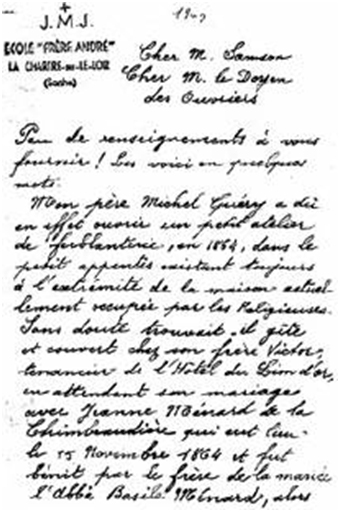 +
J.M.J.
1949
ECOLE "FRÈRE ANDRÉ"
LA CHARTRE-SUR-LE-LOIR
(Sarthe)
Cher M. Samson
Cher M. le Doyen
des Ouvriers
Peu de renseignements à vous
fournir ! Les voici en quelques
mots.
Mon père Michel Guéry a dû
en effet ouvrir un petit atelier
de ferblanterie, en 1864, dans le
petit appentis existant toujours
à l'extrémité de la maison actuel-
lement occupée par les Religieuses.
Sans doute trouvait-il gîte
et couvert chez son frère Victor,
tenancier de l'Hôtel du Lion d'or,
en attendant son mariage
avec Jeanne Ménard de la
Chimbaudière qui eut lieu
le 15 Novembre 1864 et fut
bénit par le frère de la mariée
l'Abbé Basile Ménard, alors